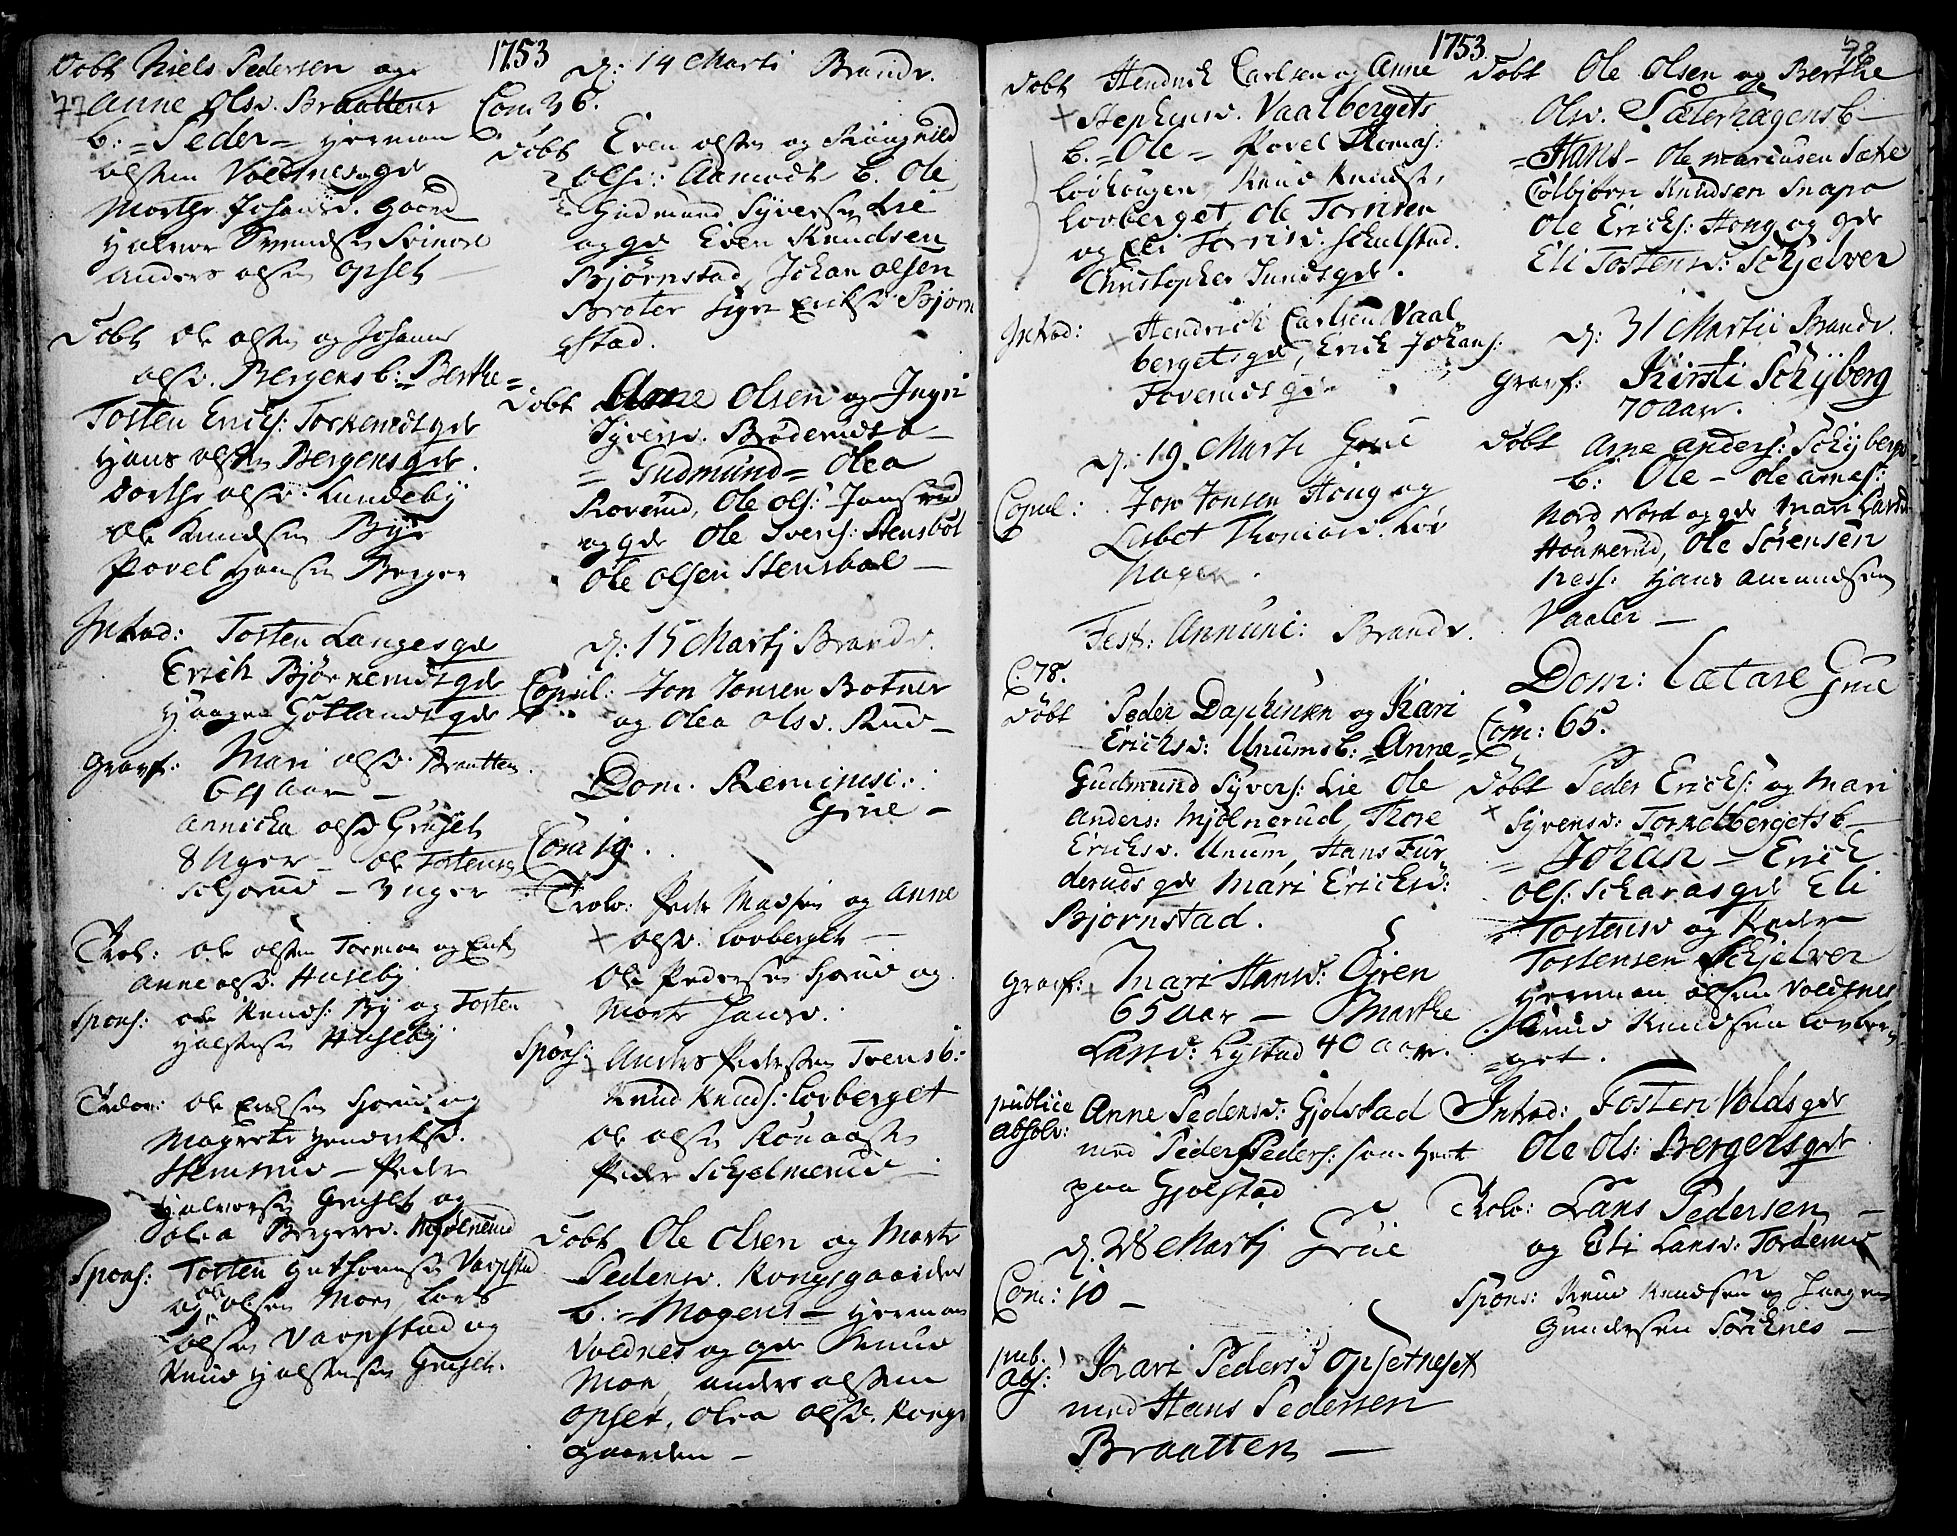 1753
77
Døbt Niels Pedersen og
Anne Olsd. Braattens
b: = Peder = Herman
Olsen Voldnes gde
Marthe Johansd. Goerd
Halvor Amundsen
Anders Olsen Opset
Døbt Ole Olsen og Johanne
Olsd. Bergens b: = Berthe =
Tosten Erichs: Torkerudsgde
Hans Olsen Bergensgde.
Dorthe Olsd. Lundeby
Ole Knudsen Bye
Povel Hansen Berger
Introd: Tosten Langesgde
Erich Bjørnerudsgde
Haagen Gotlandsgde
Gravf: Mari Olsd. Braatten
64 aar —
Annicka Olsd Gruset
8 Uger — Ole Tostens
Schjørud — 3 Uger
Trol: Ole Olsen Tormoe og Enk.
Anne Olsd. Huseby
Spons: Ole Knuds: By og Tosten
Halstensen Huseby
Trolov: Ole Erichsen Hjerud og
Magrete Hendriksd.
Hemmerud — Peder
Halvorsen Gruset og
Olea Bergersd. Mjølnerud
Spons: Tosten Guthormsen Varpstad
og Ole Olsen Moen, Lars
Olsen Varpstad og
Knud Halstensen Gruset.
D: 14 Marti Brandv.
Com: 36.
Døbt Even Olsen og Rangnild
Olsd: Aamodt b. Ole
Gudmund Syversen Lie
og gde Even Knudsen
Bjørnstad, Johan Olsen
Broter Sigri Eriksd. Bjørn
stad.
Døbt Arne Olsen og Ingri
Syversd. Bröderuds b —
= Gudmund = Olea
Roverud, Ole Ols: Jonsrud
og gde Ole Ivers: Stensbøl
Ole Olsen Stensbøl —
D: 15 Martj Brandv.
Copul: Jon Jonsen Botner
og Olea Olsd. Rud —
Dom. Reminisc:
Grue —
Com 19.
Trolov: Peder Madsen og Anne
+ Olsd. Lovberget —
Ole Pedersen Hjerud og
Marte Hansd.
Spons: Anders Pedersen Tvensb:
Knud Knuds: Lovberget
Ole Olsen Rønaasen
Peder Schjelmerud —
Døbt Ole Olsen og Marte
Pedersd. Kongsgaarden
b: = Mogens — Herman
Voldnes og gde Knud
Moe, Anders Olsen
Opset, Olea Olsd. Kongs
gaarden —
1753
78
Døbt Hendrick Carlsen og Anne
+ Stephensd. Vaalbergets
b. = Ole = Povel Thomas:
Lövhougen, Knud Knuds:
Lovberget, Ole Tornsen
og Eli Torrisd. Schulstad.
Christopher Sundsgde.
Introd: + Hendrich Carlsen Vaal
bergets gde, Erich Johans:
Foverudsgde
D: 19. Marti Grue
Copul: Jon Jonsen Houg og
Lisbet Thomasd. Löv
hagen.
Fest: Annunc: Brandv.
C. 78.
Døbt Peder Daphinsen og Kari
Ericksd: Unums b: = Anne =
Gudmund Syvers: Lie Ole
Anders: Mjølnerud, Thore
Ericksd. Unum, Hans Fur
deruds gde Mari Ericksd:
Bjørnstad.
Graf: + Mari Hansd: Ojren
65 aar — Marthe
Larsd: Lystad 40 aar.
publice
absolv: Anne Pedersd: Gjølstad
med Peder Peders: som tient
paa Gjølstad
D. 28 Martj Grue
Com: 10 —
pub.
Abs: Kari Pedersd Opsetneset
med Hans Pedersen
Braatten —
Døbt Ole Olsen og Berthe
Olsd. Sæterhagens b —
= Hans — Ole Mariusen Sætre
Colbjörn Knudsen Snapa
Ole Ericks: Houg og gde
Eli Tostensd: Schjelver
D: 31 Martii Brandv.
Gravf: Kirsti Schyberg
70 aar.
Døbt Arne Anders: Schyberg
b: Ole — Ole Arnes:
Nord Nord og gde Mari Larsd
Houkerud, Ole Sørensen
Hans Amundsen
Vaaler —
Dom: Lætare Grue
Com: 65.
Døbt Peder Ericks: og Mari
+ Syversd: Torkelbergets b —
= Johan — Erick
Ols: Scharasgde Eli
Tostensd og Peder
Tostensen Schjelver
Herman Olsen Voldsnes
Knud Knudsen Lovber
= get.
Introd: Tosten Voldsgde
Ole Ols: Bergersgde.
Trolov: Lars Pedersen —
og Eli Larsd: Torderud
Spons: Knud Knudsen og Haagen
Gundersen Söricknes —